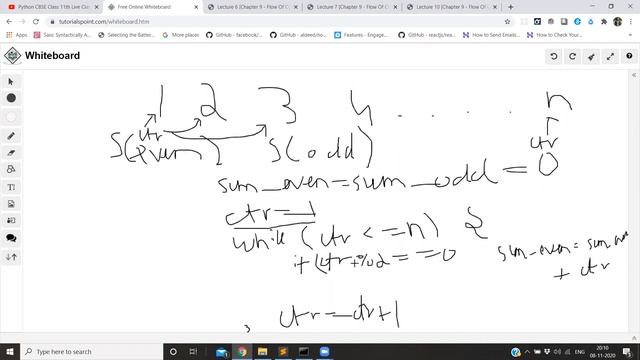 Python CBSE Class 11th Live Cla
Free Online Whiteboard
Lecture 6 [Chapter 9 - Flow Of C
Lecture 7 [Chapter 9 - Flow Of C
Lecture 10 [Chapter 9 - Flow Of
tutorialspoint.com/whiteboard.htm
Apps
Saas: Syntactically A...
Selecting the Batter...
GitHub - facebook/...
GitHub - aldeed/no...
Features - Engage...
GitHub - reactjs/rea...
How to Send Emails...
How To Send Emails...
Whiteboard
1 2 3 4 . . . . . n
ctr
ctr
S(even) S(odd)
sum_even = sum_odd = 0
ctr = 1
while (ctr <= n) {
if (ctr % 2 == 0
sum_even = sum
+ ctr
ctr = ctr + 1
Type here to search
ENG
20:10
08-11-2020